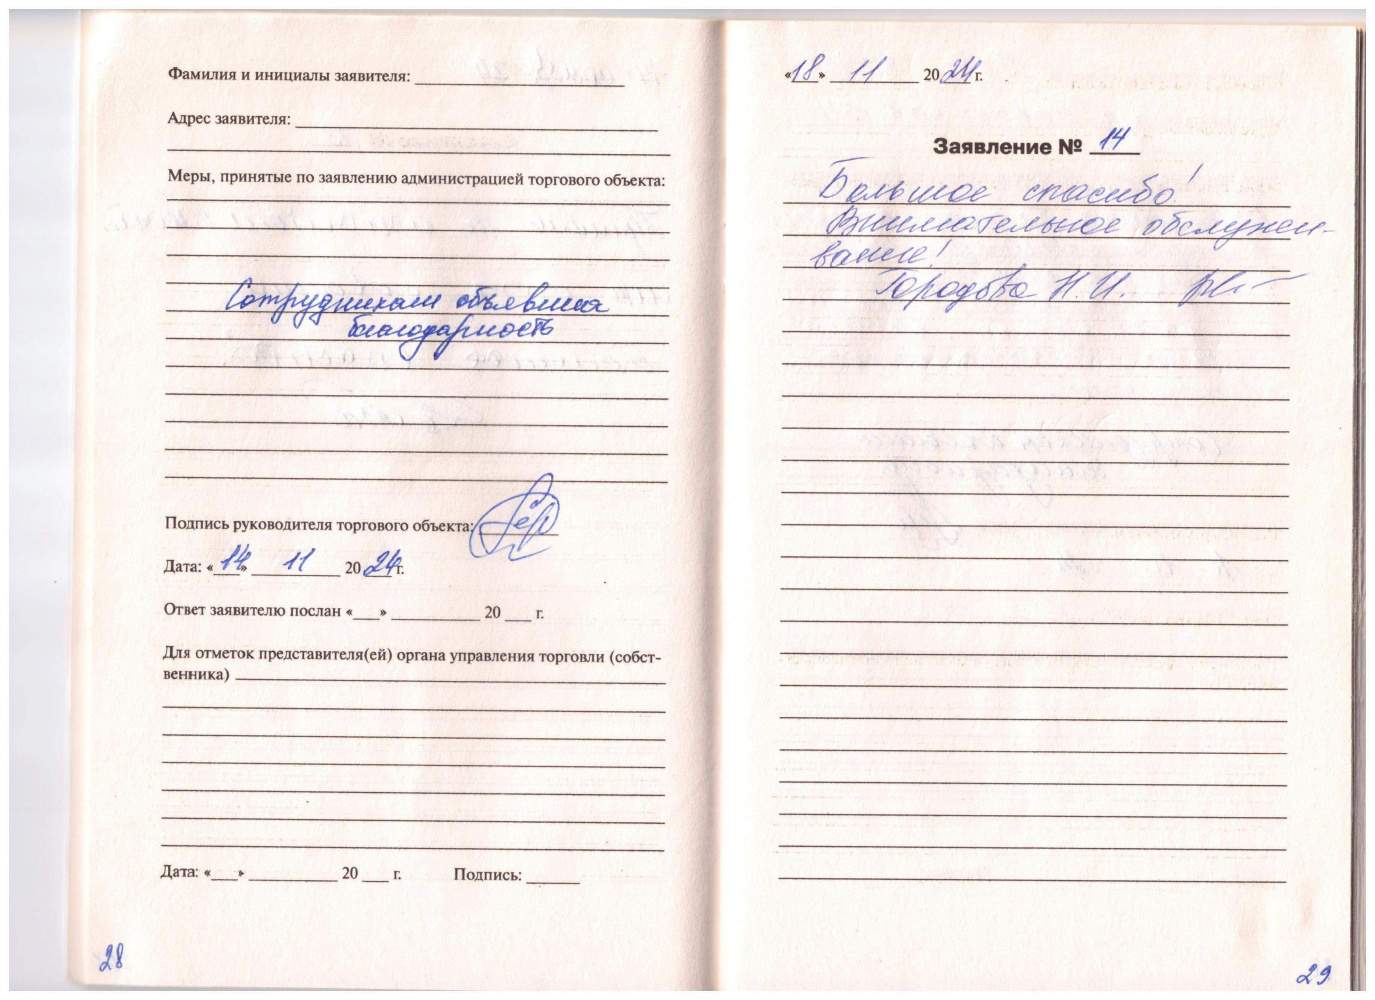 Фамилия и инициалы заявителя:
Адрес заявителя:
Меры, принятые по заявлению администрацией торгового объекта:
Сотрудникам объявлена
благодарность
Подпись руководителя торгового объекта:
Дата: «14» 11 2024 г.
Ответ заявителю послан «___» __________ 20 ___ г.
Для отметок представителя(ей) органа управления торговли (собст-
венника)
Дата: «___» __________ 20 ___ г. Подпись: ______
28
«18» 11 2024 г.
Заявление № 14
Большое спасибо!
Внимательное обслужи-
вание!
Городова Н.И.
29